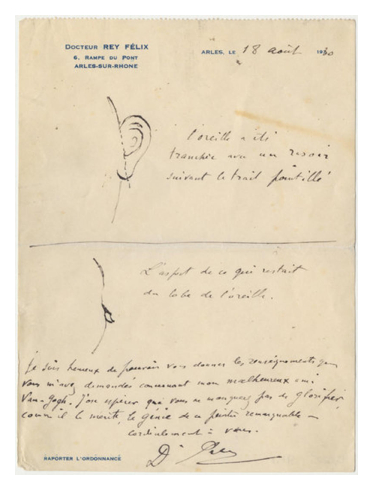 DOCTEUR REY FÉLIX
6, RAMPE DU PONT
ARLES-SUR-RHONE
ARLES, LE 18 août 1930
l'oreille a été
tranchée avec un rasoir
suivant le trait pointillé
L'aspect de ce qui restait
du lobe de l'oreille.
Je suis heureux de pouvoir vous donner les renseignements que
vous m'avez demandés concernant mon malheureux ami
Van-Gogh. J'ose espérer que vous ne manquerez pas de glorifier
comme il le mérite, le génie de ce peintre remarquable
cordialement à vous.
Dr Rey
RAPORTER L'ORDONNANCE